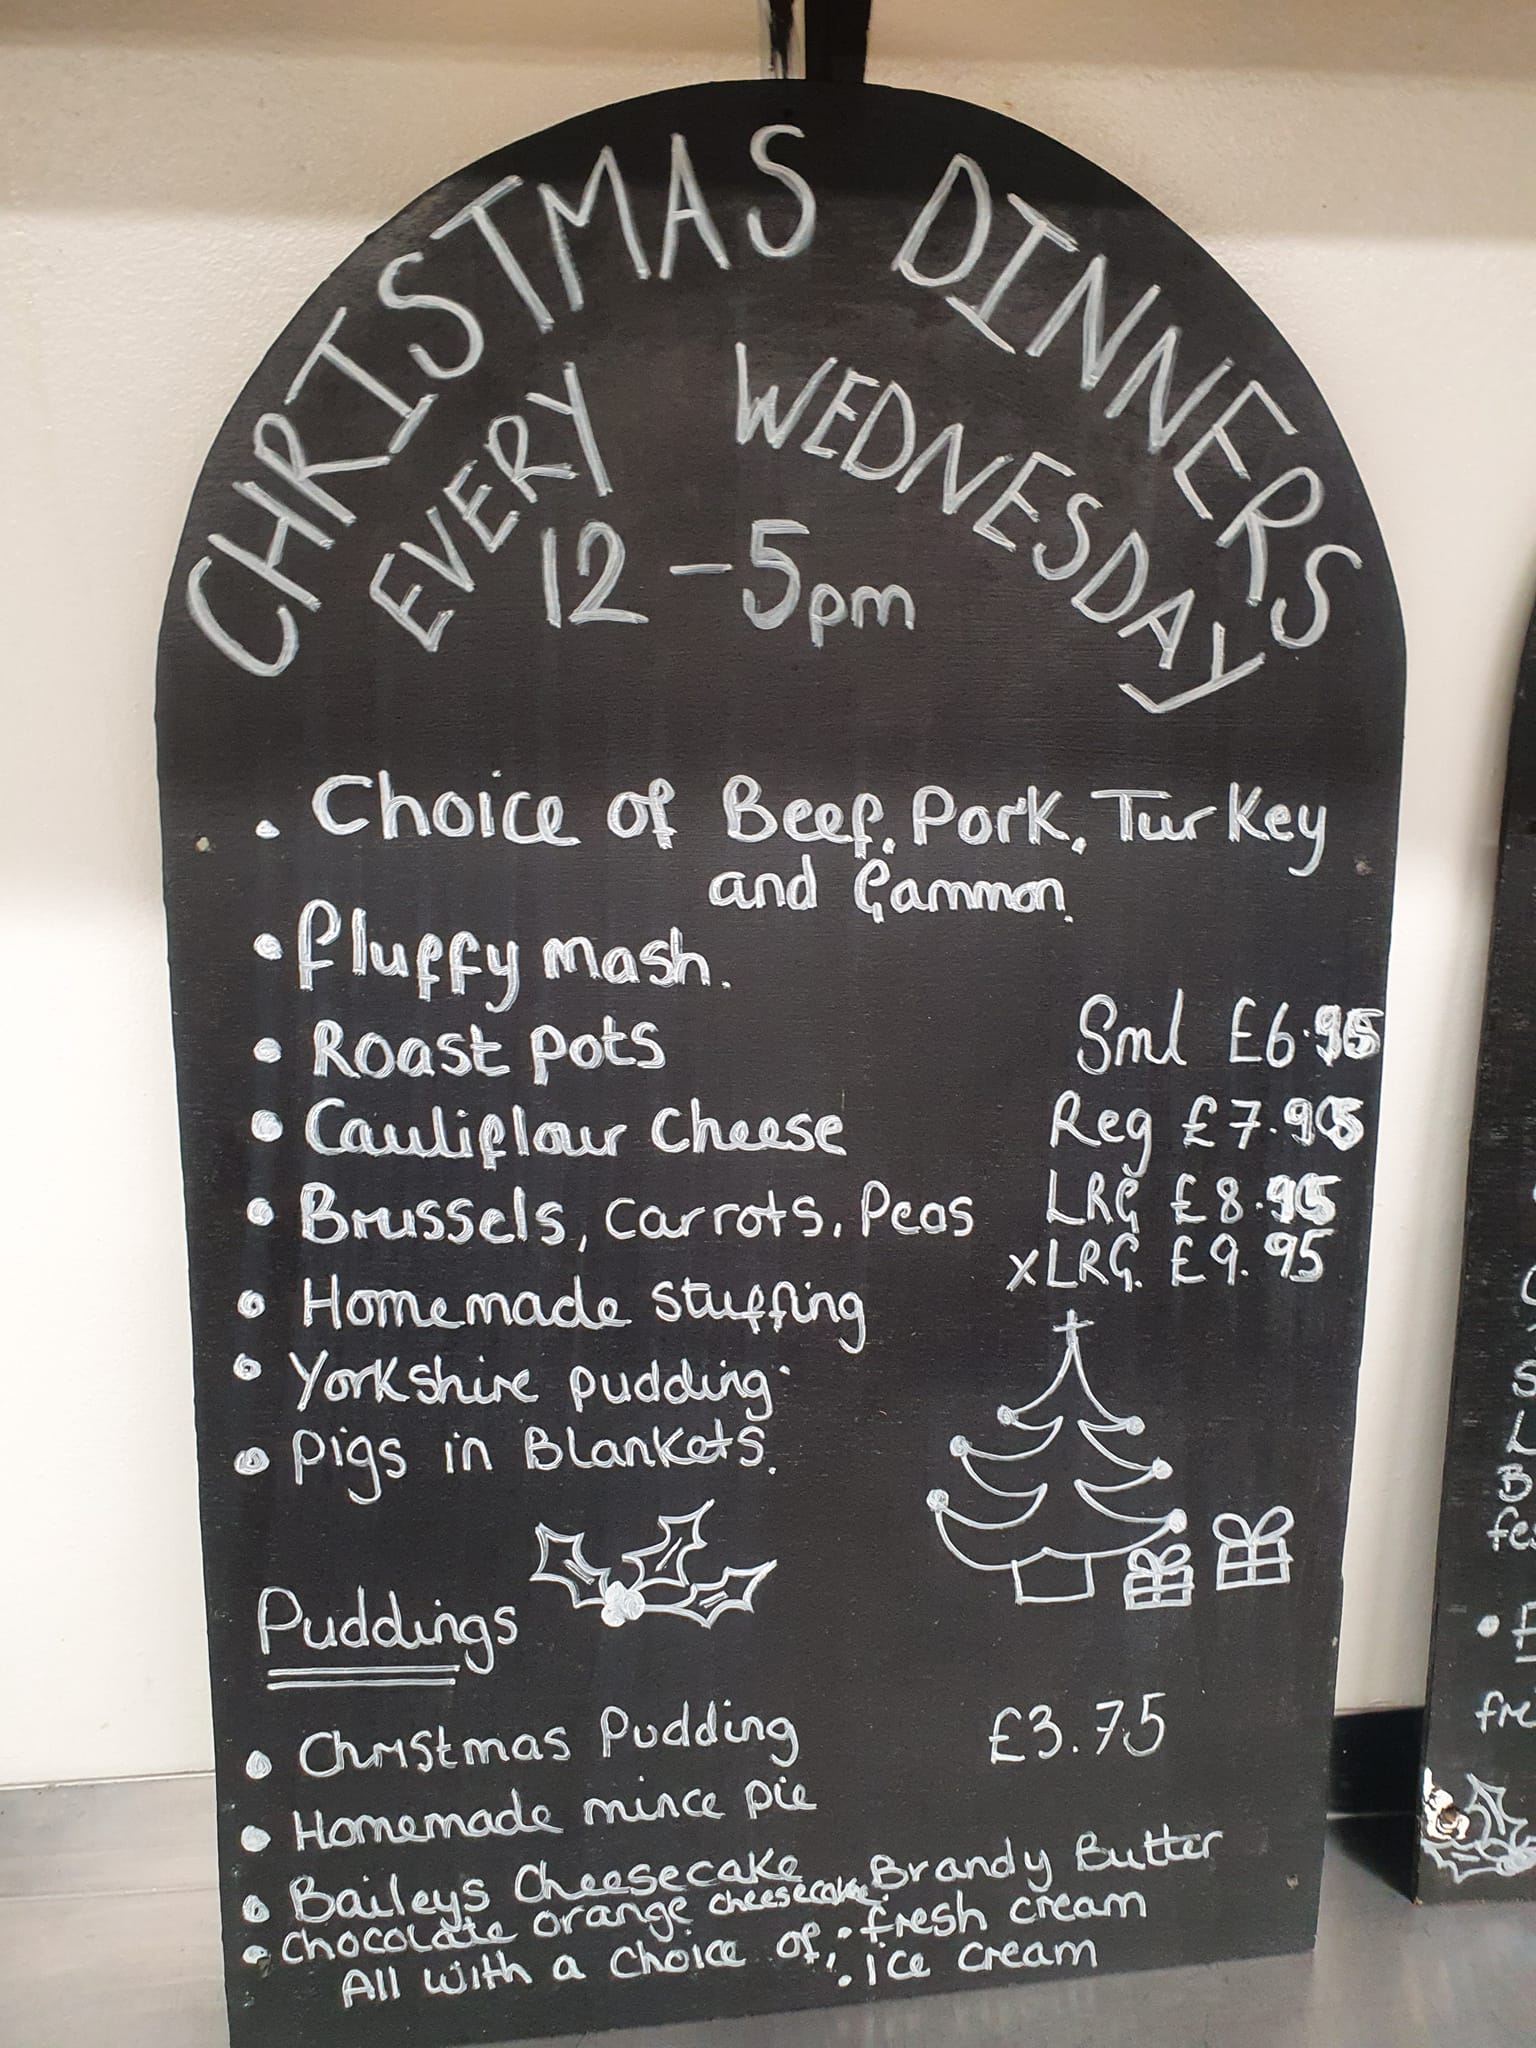 CHRISTMAS DINNERS
EVERY WEDNESDAY
12-5pm
• Choice of Beef, Pork, Turkey
and Gammon.
• fluffy mash.
• Roast pots
• Cauliflour Cheese
• Brussels, carrots, Peas
• Homemade stuffing
• Yorkshire pudding
• pigs in Blankets.
Sml £6.95
Reg £7.95
LRG £8.95
XLRG. £9.95
Puddings
• Christmas Pudding £3.75
• Homemade mince pie
• Baileys Cheesecake
• Chocolate orange cheesecake
All with a choice of:
• Brandy Butter
• fresh cream
• ice cream